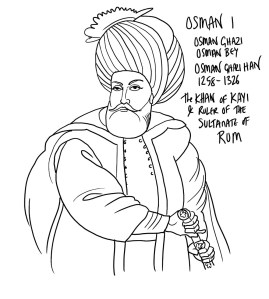 OSMAN I
OSMAN GHAZI
OSMAN BEY
OSMAN GHALI HAN
1258-1326
The KHAN OF KAYI
& RULER OF THE
SULTANATE OF
ROM